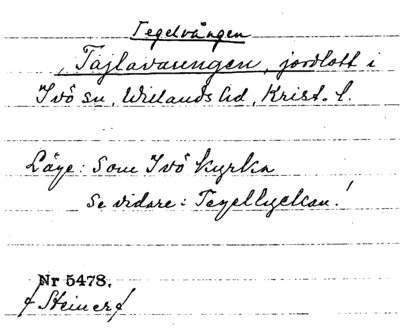 Tegelvången
Tajlavaungen, jordlott i
Ivö sn, Willands hd, Krist. l.
Läge: Som Ivö kyrka
Se vidare: Tegellyckan!
Nr 5478.